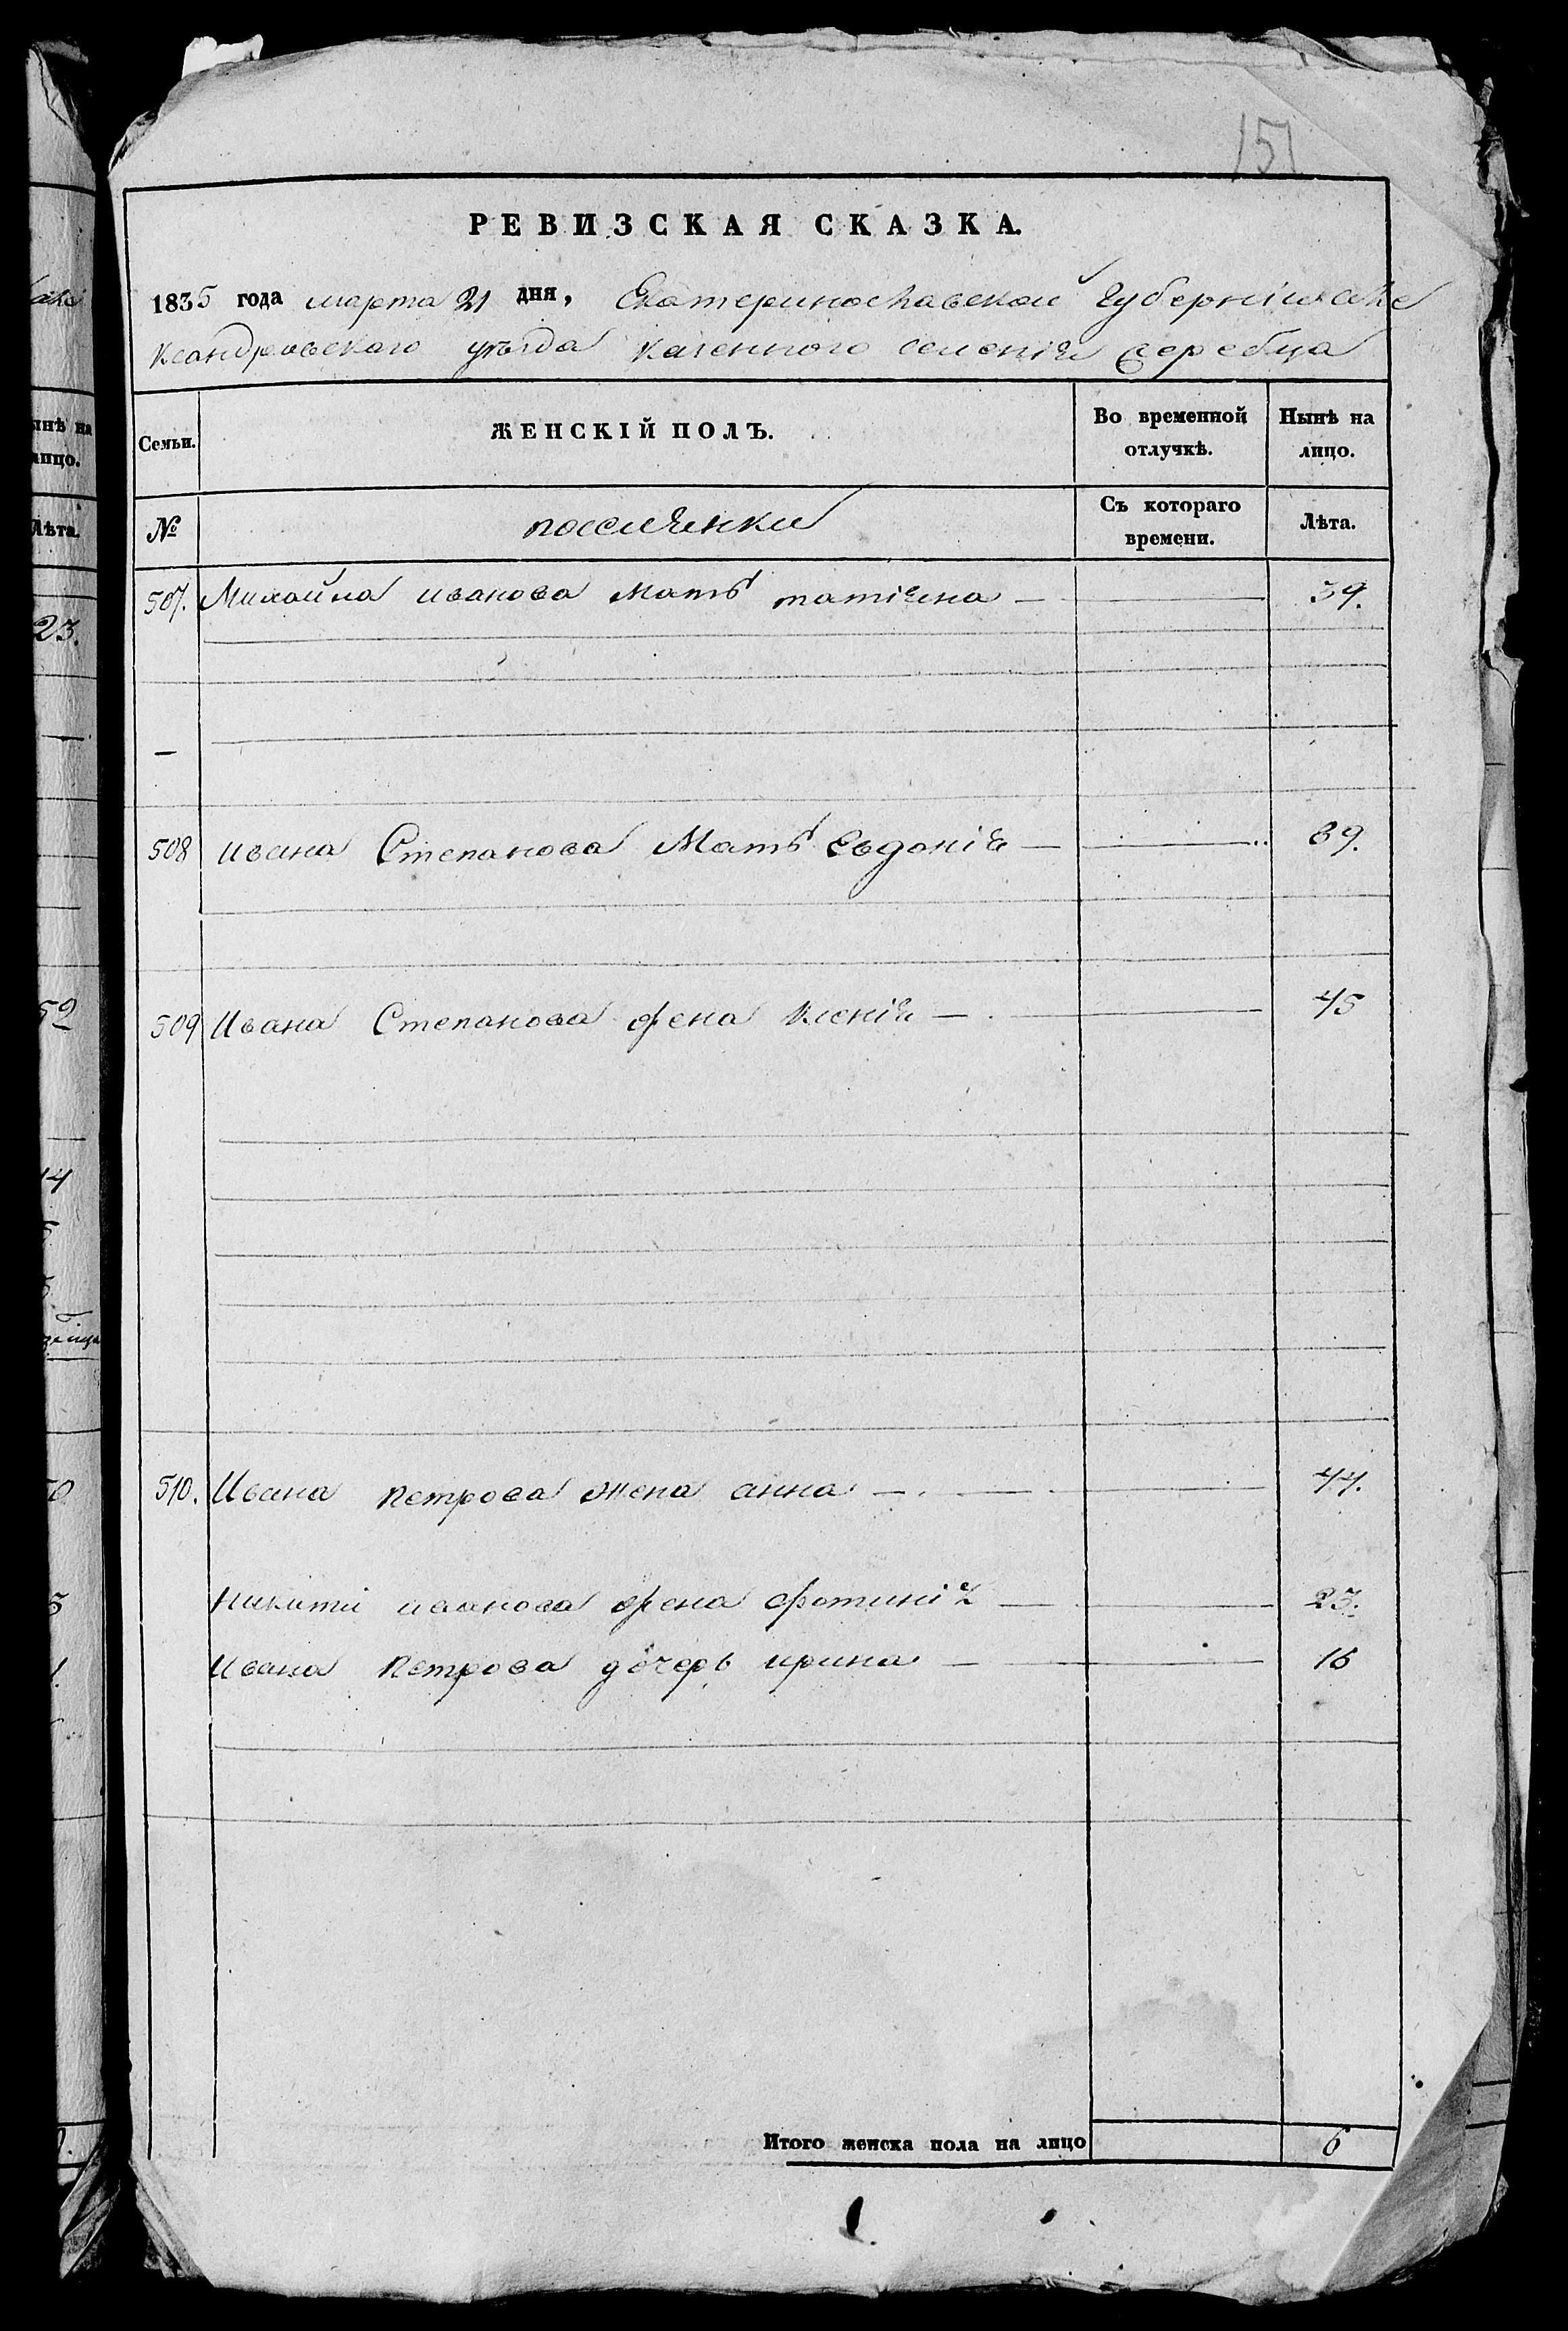 151
РЕВИЗСКАЯ СКАЗКА.
1835 года марта 21 дня, Екатеринославской губерніи але
ксандровского уѣзда казенного селенія серебца
Семьи. ЖЕНСКІЙ ПОЛЪ. Во временной отлучкѣ. Нынѣ на лицо.
№ поселянки Съ котораго времени. Лѣта.
507. Михайла иванова мать татіяна — 39.
508 ивана Степанова Мать Евдокія — 89.
509 Ивана Степанова жена ксенія — 45
510. Ивана петрова жена анна — 44.
никиты иванова жена фотинія — 23.
Ивана петрова дочерь ирина — 16
Итого женска пола на лицо 6